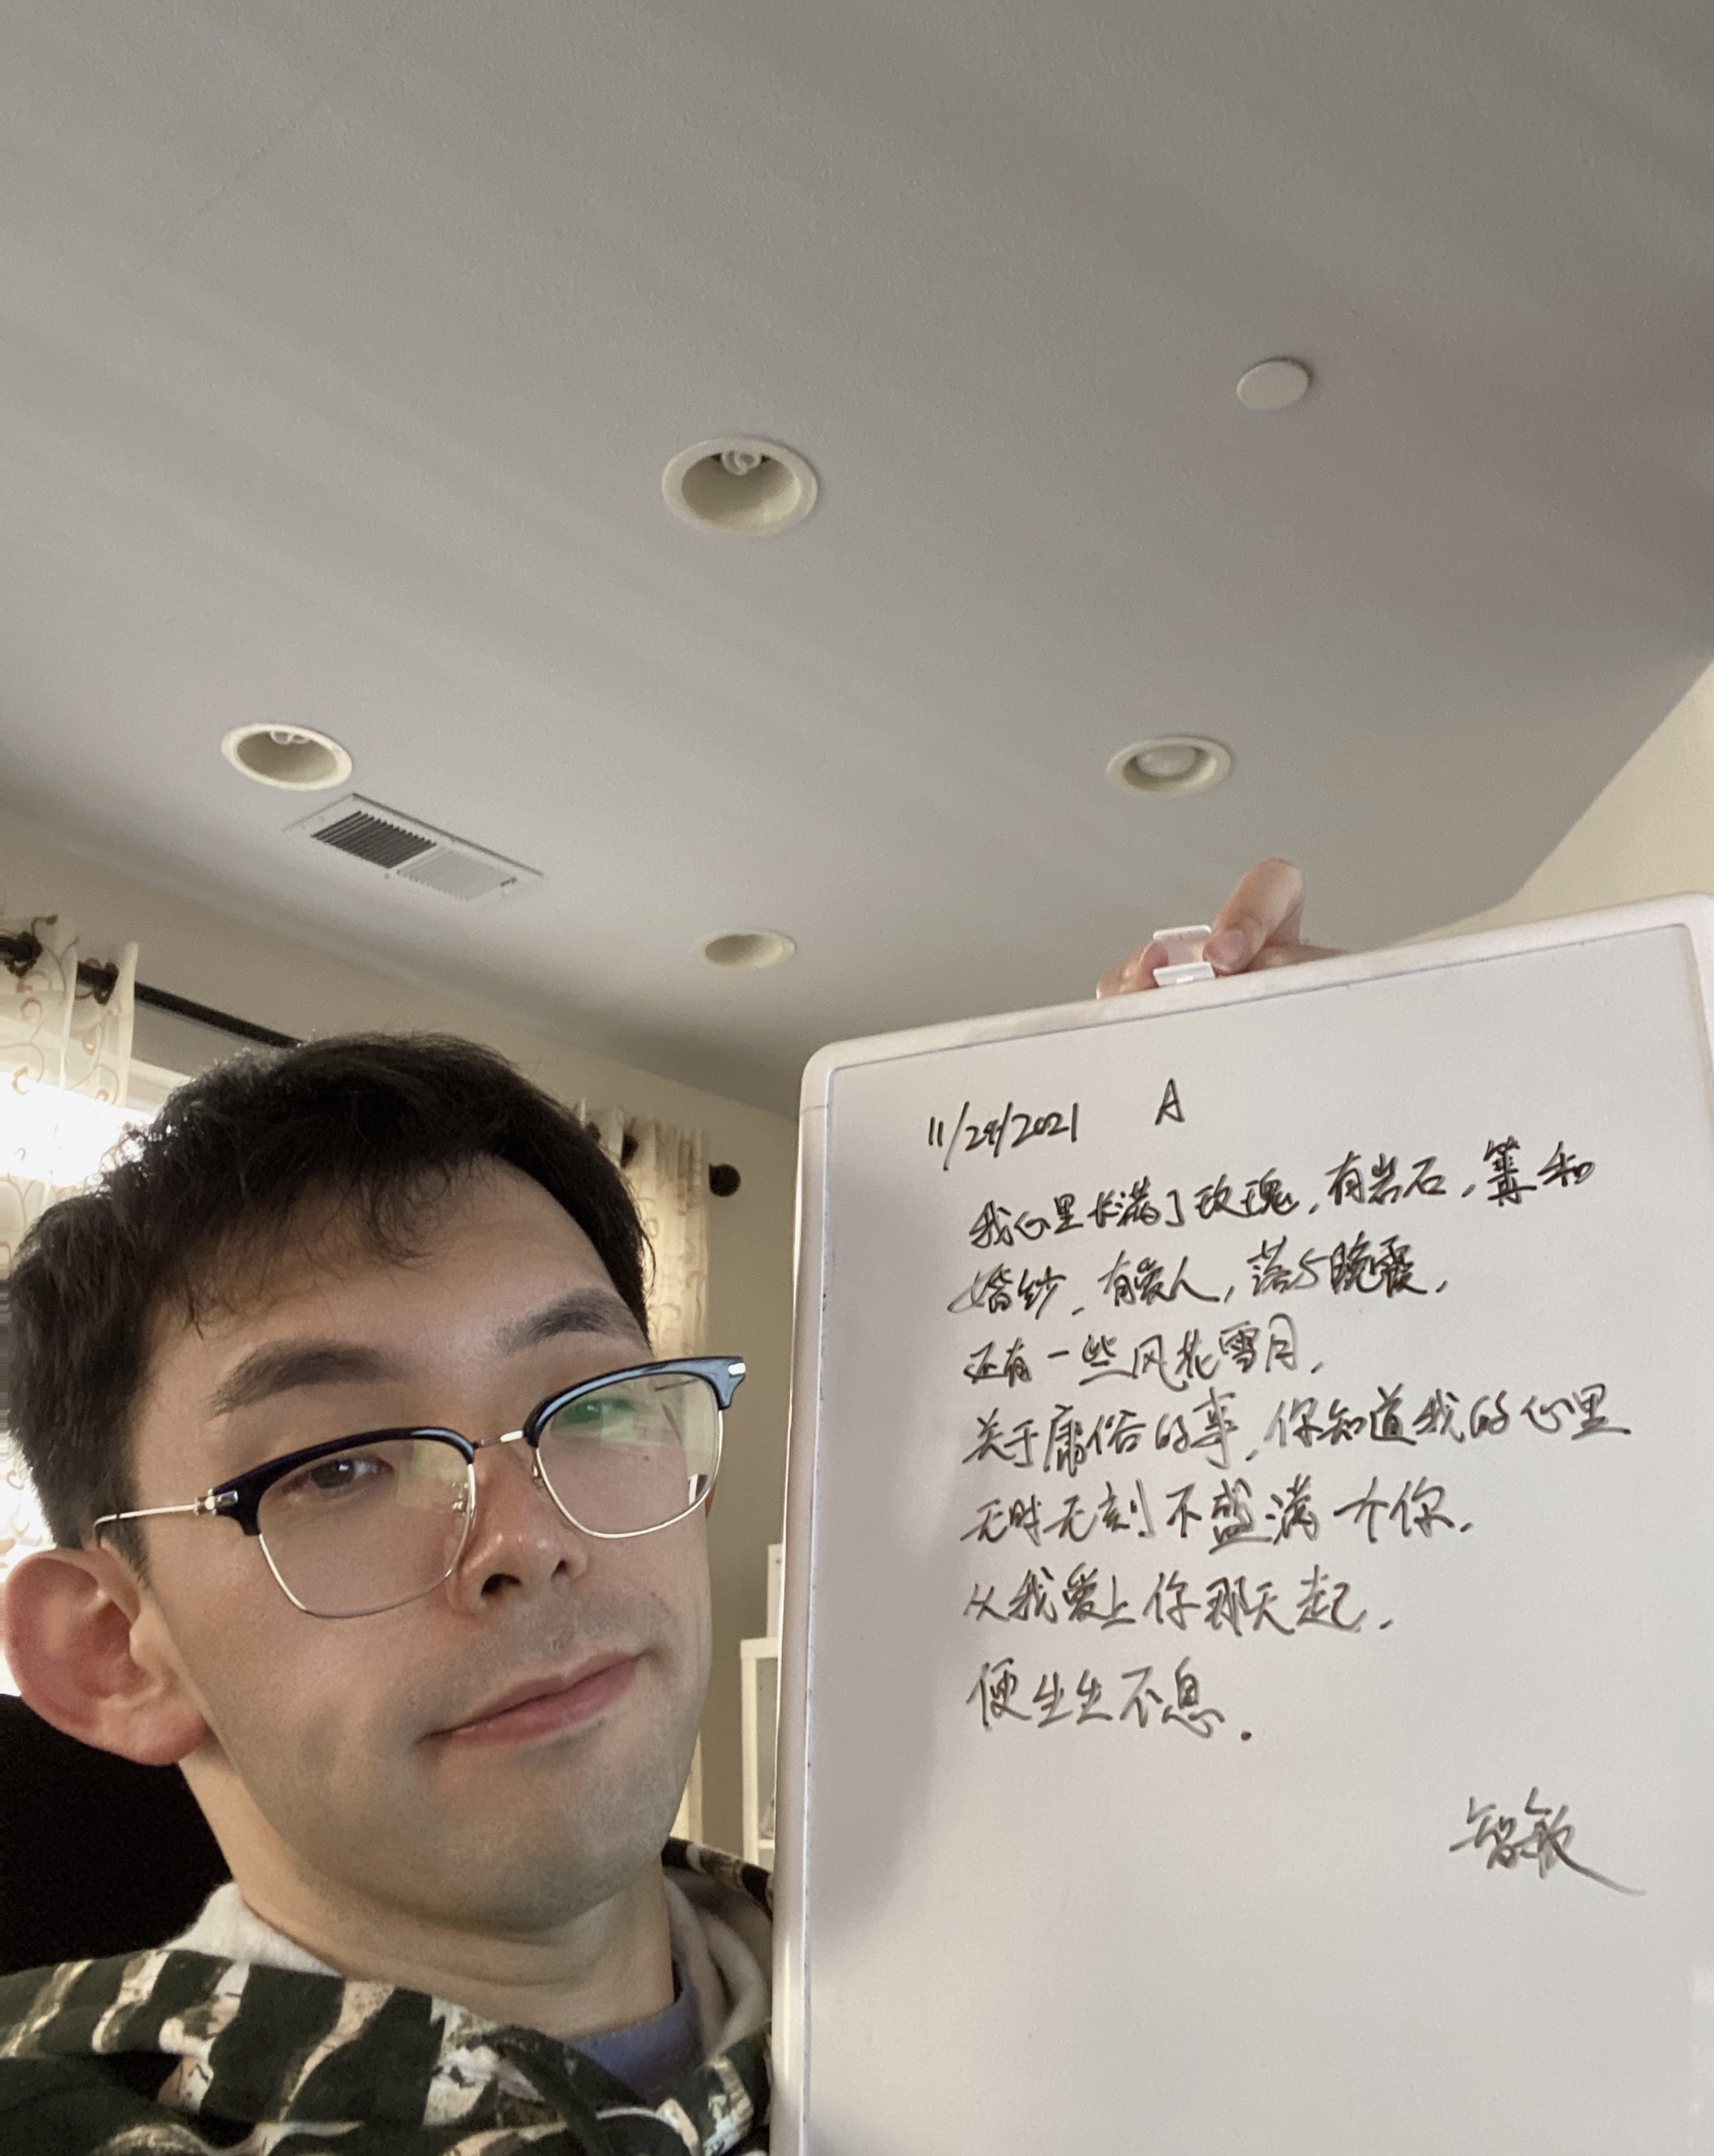 11/28/2021 A
我心里长满了玫瑰,有岩石,篝和
婚纱,有爱人,落与晚霞,
还有一些风花雪月,
关于庸俗的事,你知道我的心里
无时无刻不盛满个你,
从我爱上你那天起,
便生生不息.
智敏